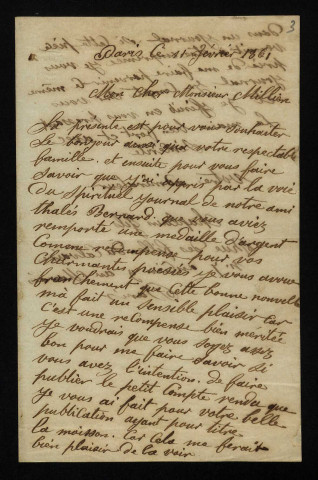 3
Paris le 1er février 1861
Mon Cher Monsieur Millien
La présente est pour vous souhaiter
le bonjour ainsi que votre respectable
famille. et ensuite pour vous faire
savoir que j'ai appris par la voie
du Spirituele journal de notre ami
thalès Bernard, que vous aviez
remporté une medaille d'argent
Comme redempense pour vos
Charmantes poesies je vous avoue
franchement que Cette bonne nouvelle
m'a fait un Sensible plaisir Car
C'est une recompense bien meritée
Je voudrais que vous soyez assez
bon pour me faire Savoir Si
vous avez l'intention de faire
publier le petit Compte rendu que
Je vous ai fait pour votre belle
publication ayant pour titre
la moisson. Car Cela me ferait
bien plaisir de la voir